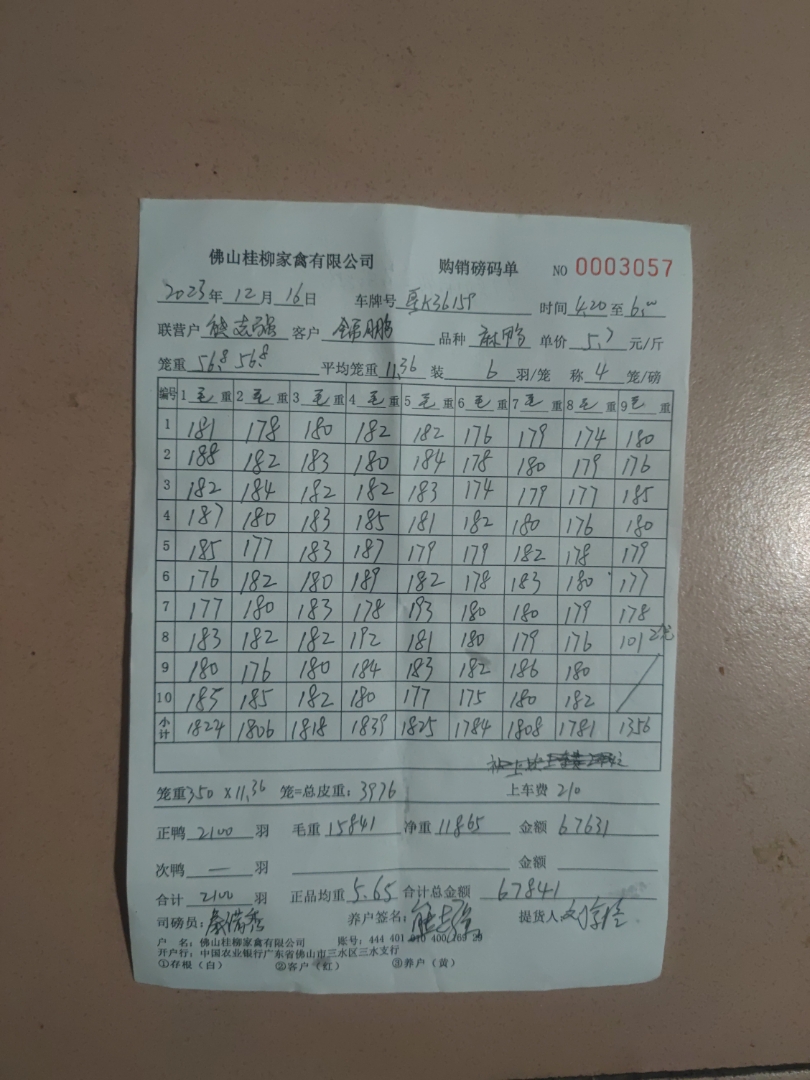 佛山桂柳家禽有限公司 购销磅码单 NO 0003057
2023年12月16日 车牌号 K36159 时间 4.20 至 6.00
联营户 熊志强 客户 鹏 品种 麻鸭 单价 5.7 元/斤
笼重 56.8 56.8 平均笼重 11.36 装 6 羽/笼 称 4 笼/磅
编号 1毛重 2毛重 3毛重 4毛重 5毛重 6毛重 7毛重 8毛重 9毛重
1 181 178 180 182 182 176 179 174 180
2 188 182 183 180 184 178 180 179 176
3 182 184 182 182 183 174 179 177 185
4 187 180 183 185 181 182 180 176 180
5 185 177 183 187 179 179 182 178 179
6 176 182 180 189 182 178 183 180 177
7 177 180 183 178 193 180 180 179 178
8 183 182 182 192 181 180 179 176 101 2笼
9 180 176 180 184 183 182 186 180
10 185 185 182 180 177 175 180 182
小计 1824 1806 1818 1839 1825 1784 1808 1781 1356
笼重 350 × 11.36 笼=总皮重: 3976 上车费 210
正鸭 2100 羽 毛重 15841 净重 11865 金额 67631
次鸭 — 羽 金额
合计 2100 羽 正品均重 5.65 合计总金额 67841
司磅员: 养户签名: 熊志强 提货人
户 名: 佛山桂柳家禽有限公司 账号: 444 401 010 400
开户行: 中国农业银行广东省佛山市三水区三水支行
①存根(白) ②客户(红) ③养户(黄)